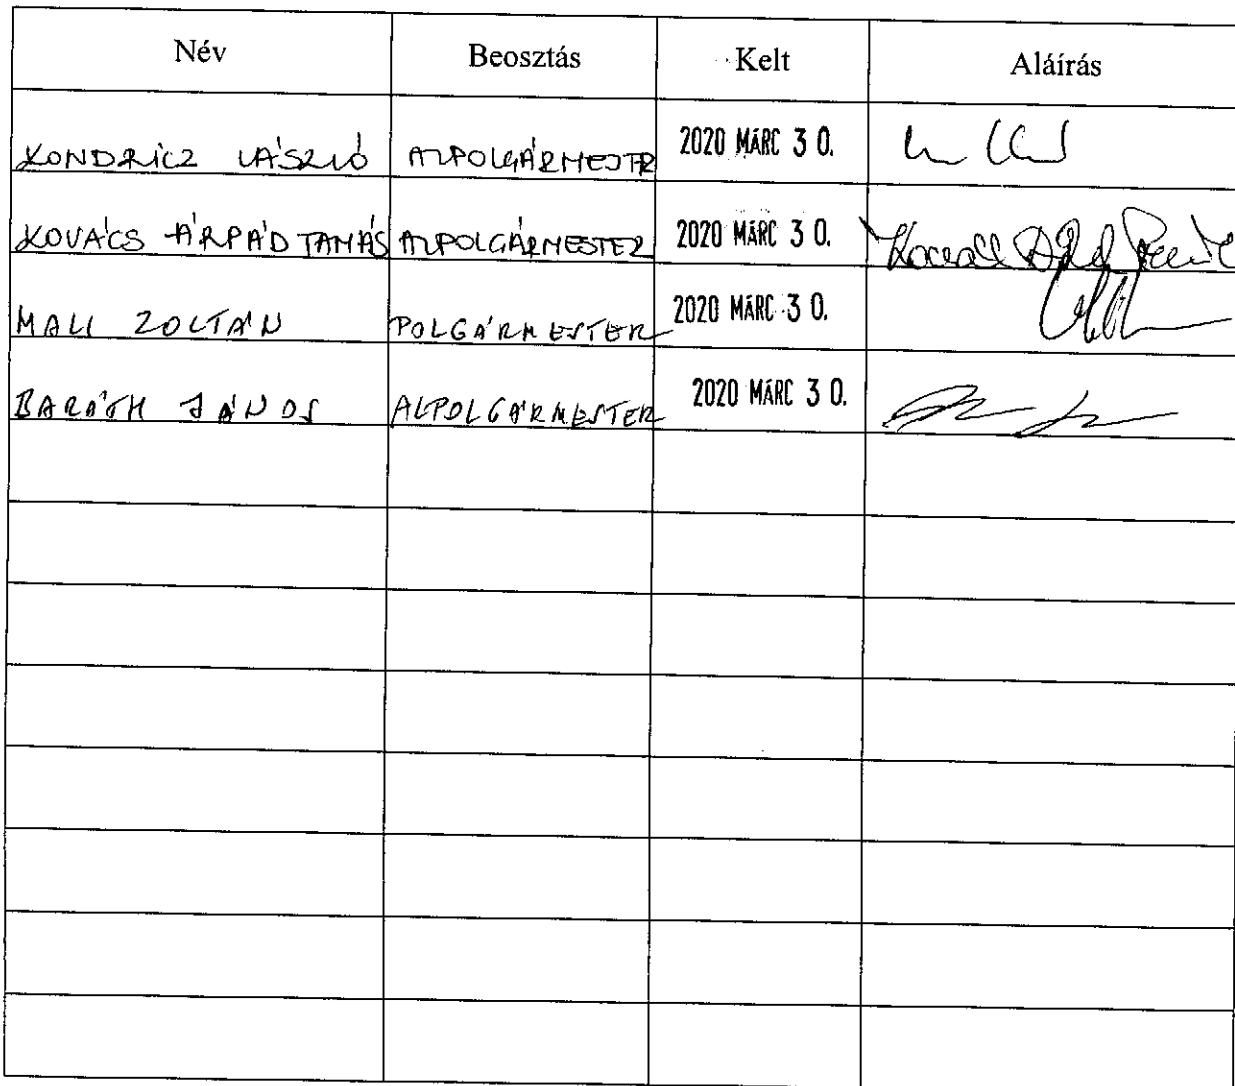 Név Beosztás Kelt Aláírás
KONDRICZ LÁSZLÓ ALPOLGÁRMESTR 2020 MÁRC 3 0.
KOVÁCS ÁRPÁD TAMÁS ALPOLGÁRMESTER 2020 MÁRC 3 0.
MALI ZOLTÁN POLGÁRMESTER 2020 MÁRC 3 0.
BARÁTH JÁNOS ALPOLGÁRMESTER 2020 MÁRC 3 0.